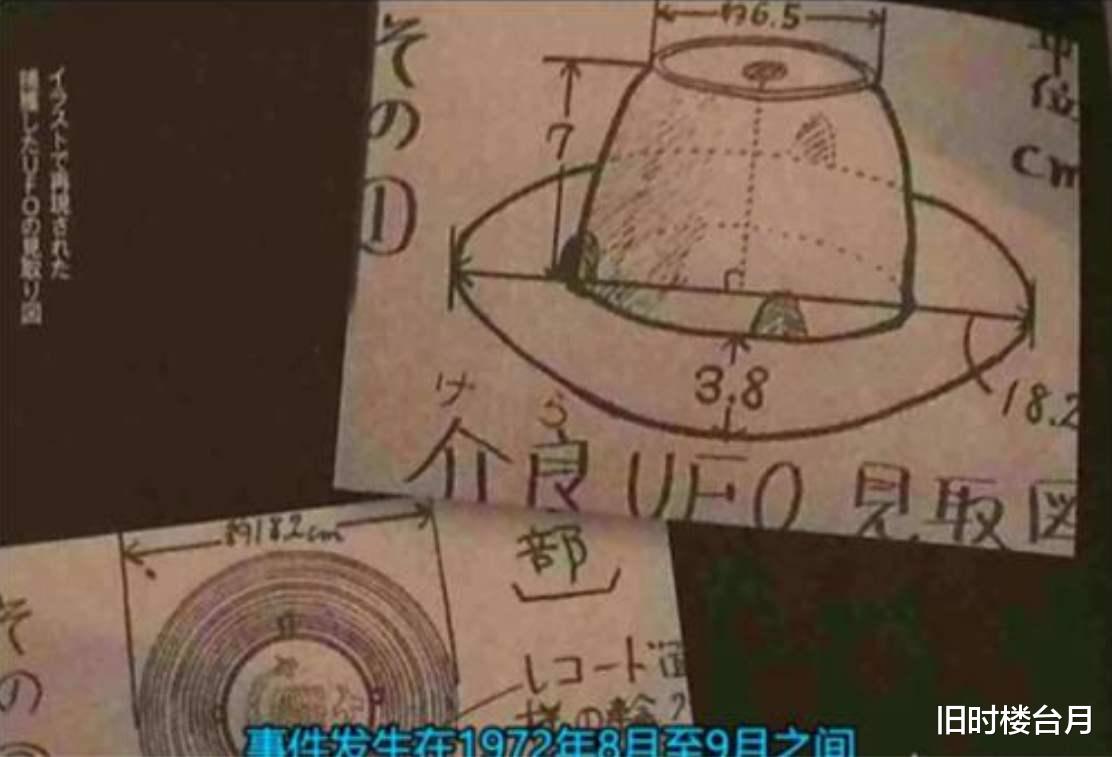 イラストで再現された
捕獲したUFOの見取り図
その①
約6.5
単位cm
7
3.8
18.2
けら
介良UFO見取図
約18.2cm
部
その
レコード面
様の輪?
事件发生在1972年8月至9月之间
旧时楼台月